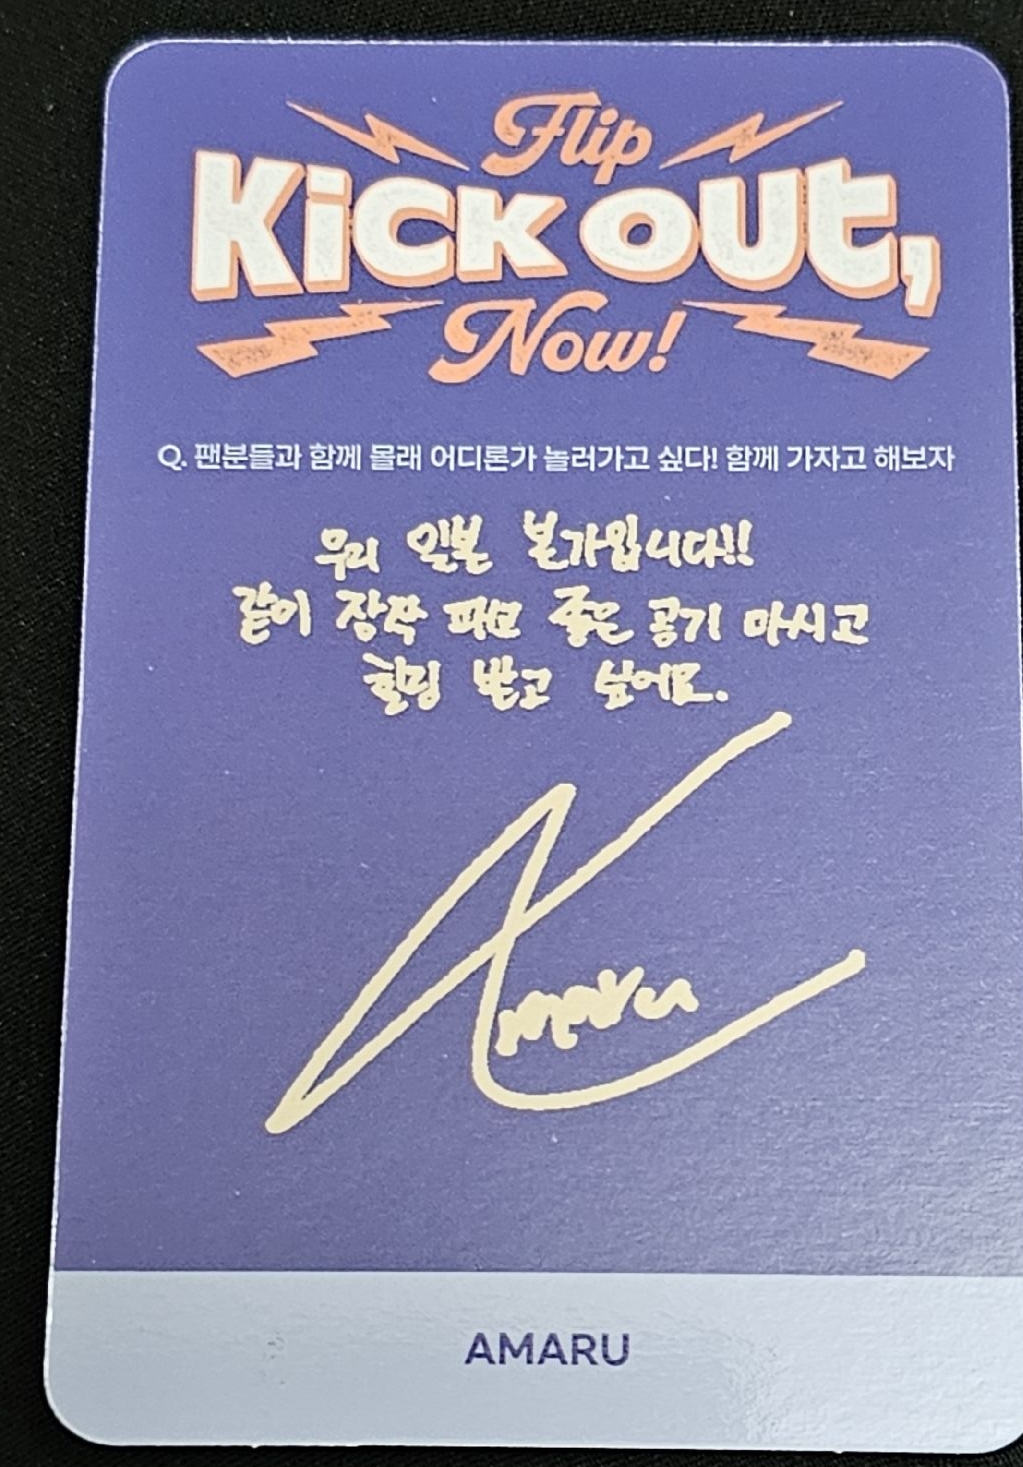 Flip
Kick out,
Now!
Q. 팬분들과 함께 몰래 어디론가 놀러가고 싶다! 함께 가자고 해보자
우리 일본 본가입니다!!
같이 장작 패고 좋은 공기 마시고
힐링 받고 싶어요.
Amaru
AMARU